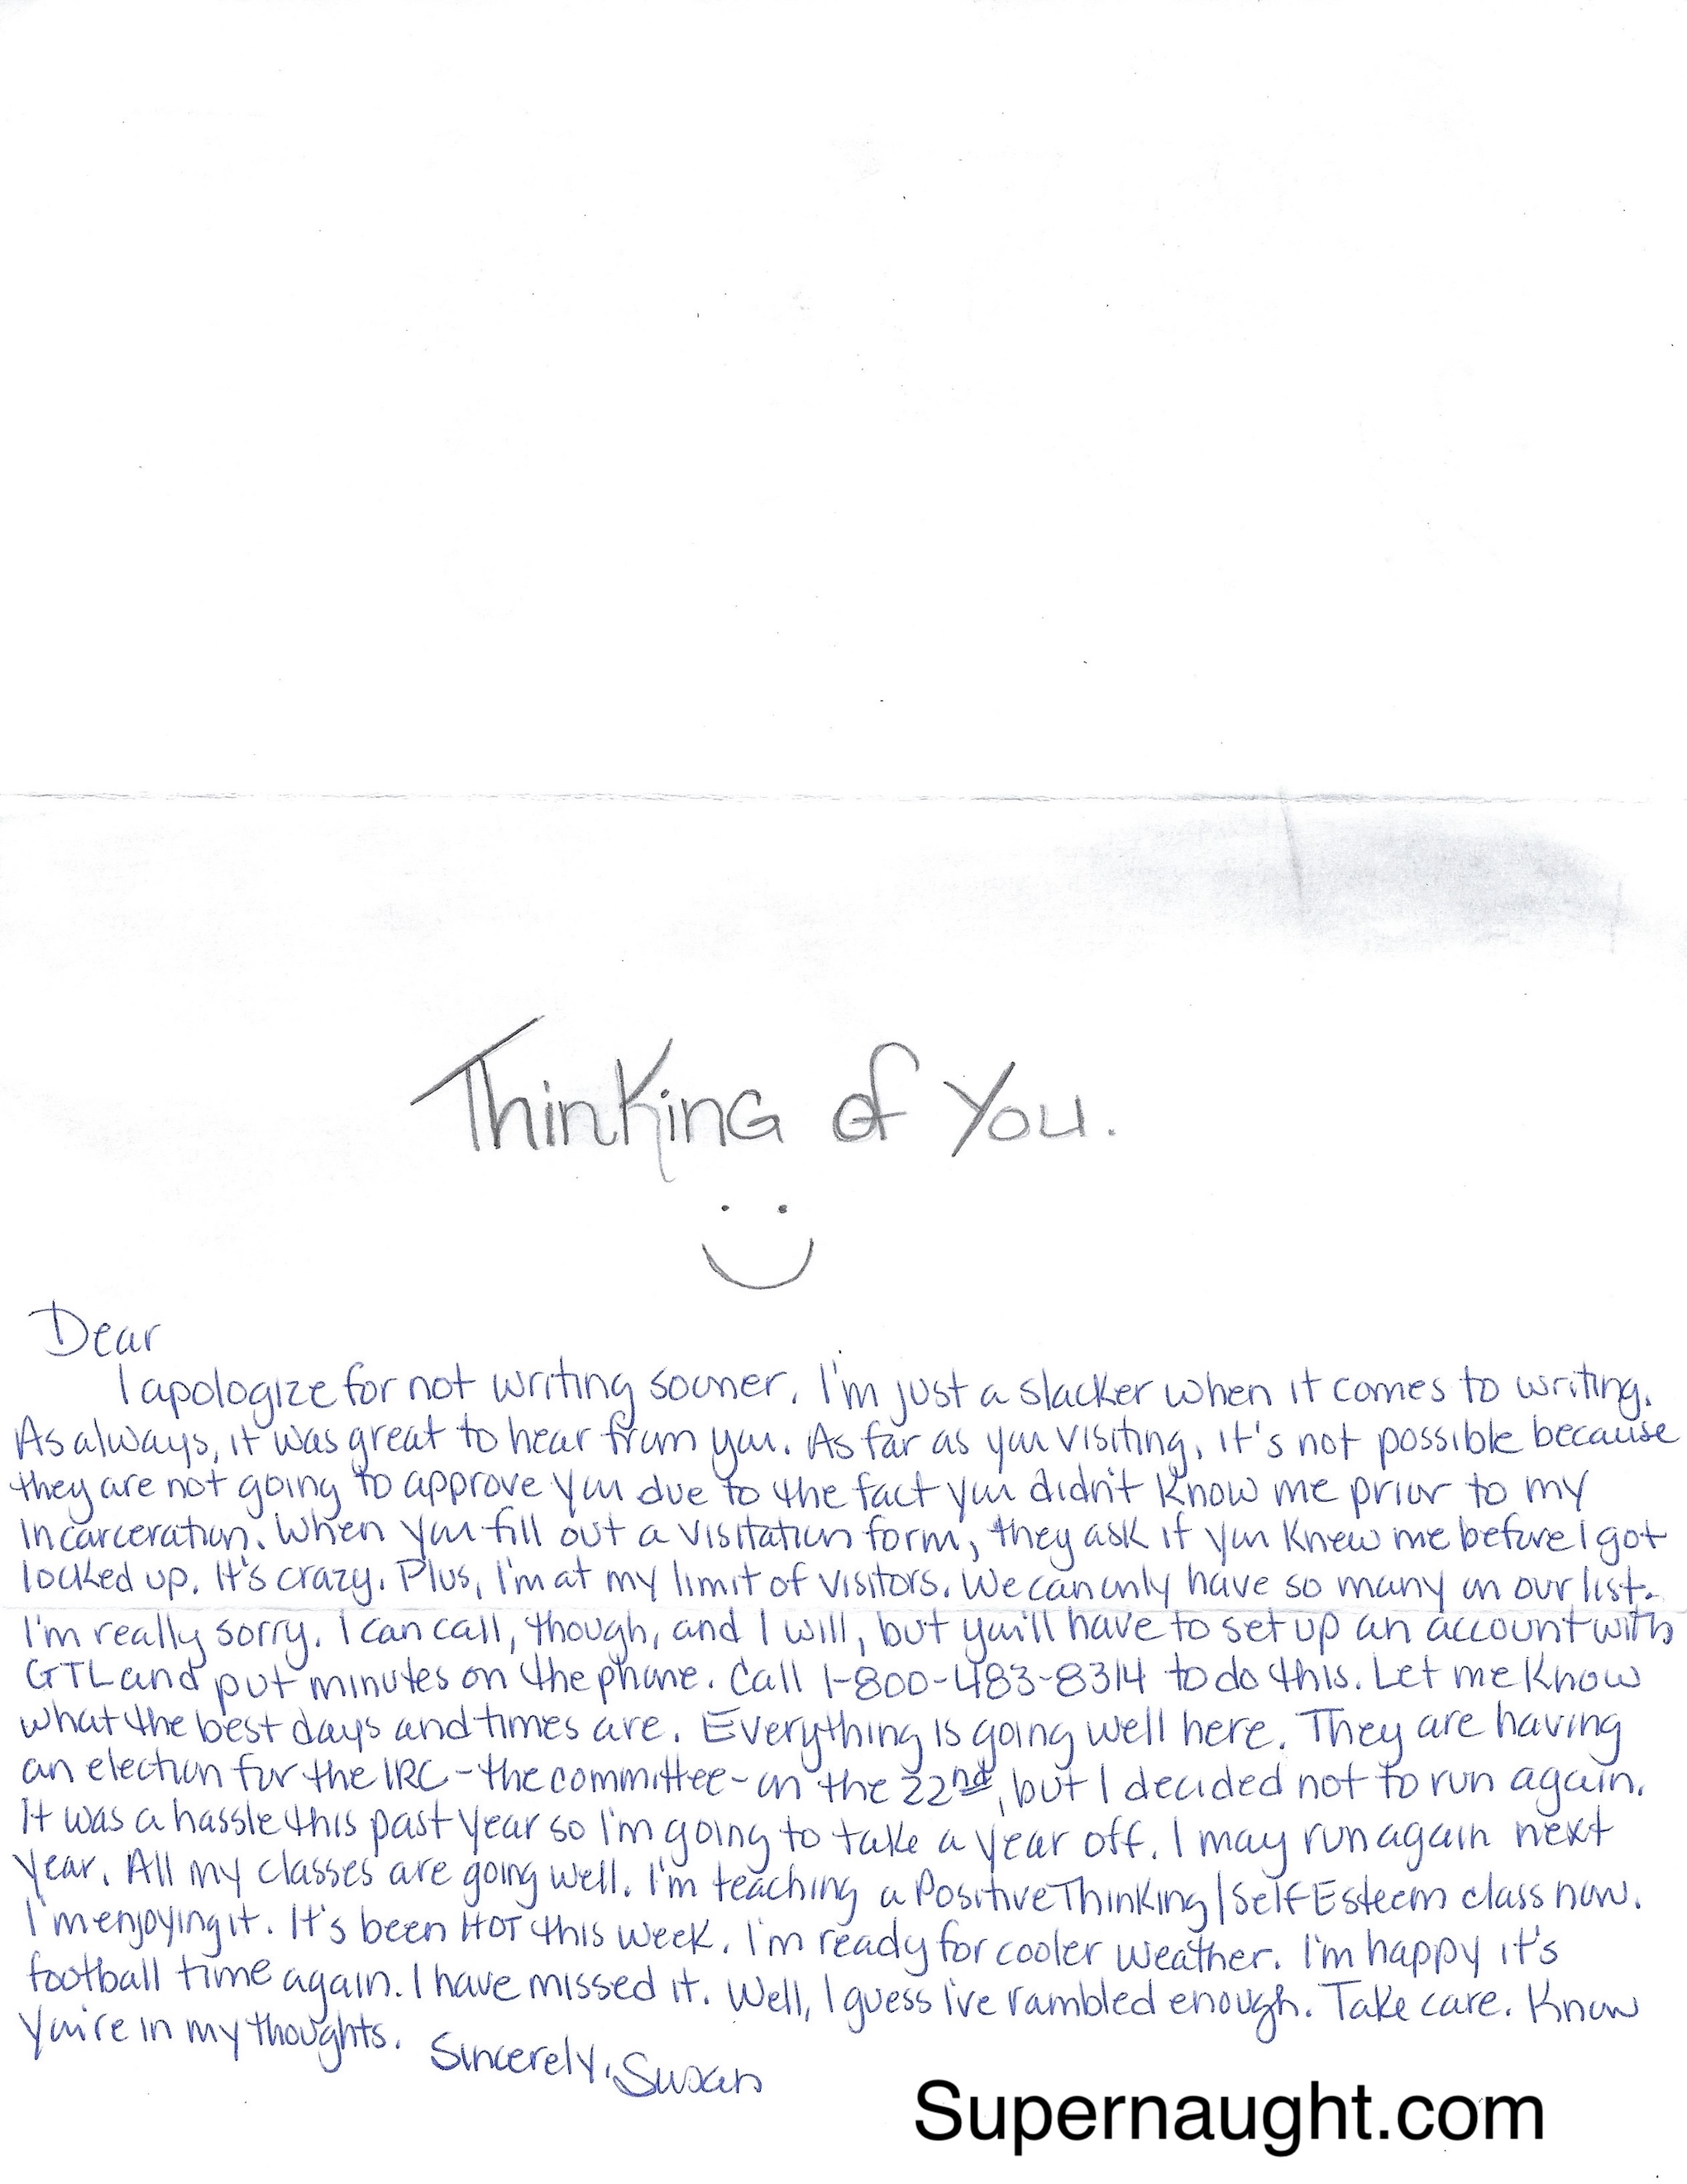 Thinking of You.
Dear
I apologize for not writing sooner. I'm just a slacker when it comes to writing.
As always, it was great to hear from you. As far as you visiting, it's not possible because
they are not going to approve you due to the fact you didn't know me prior to my
incarceration. When you fill out a visitation form, they ask if you knew me before I got
locked up. It's crazy. Plus, I'm at my limit of visitors. We can only have so many on our list.
I'm really sorry. I can call, though, and I will, but you'll have to set up an account with
GTL and put minutes on the phone. Call 1-800-483-8314 to do this. Let me know
what the best days and times are. Everything is going well here. They are having
an election for the IRC - the committee - on the 22nd, but I decided not to run again.
It was a hassle this past year so I'm going to take a year off. I may run again next
year. All my classes are going well. I'm teaching a Positive Thinking/Self Esteem class now.
I'm enjoying it. It's been HOT this week. I'm ready for cooler weather. I'm happy it's
football time again. I have missed it. Well, I guess I've rambled enough. Take care. Know
you're in my thoughts. Sincerely, Susan
Supernaught.com